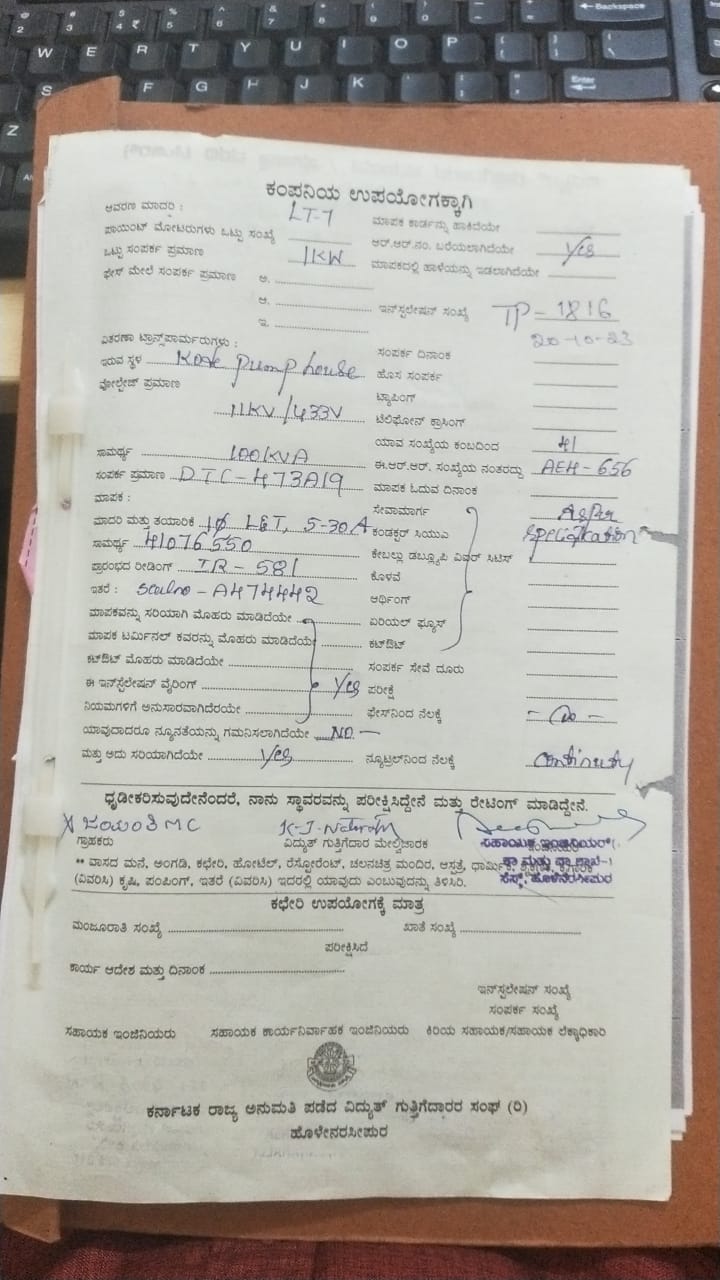 ಕಂಪನಿಯ ಉಪಯೋಗಕ್ಕಾಗಿ
ಆವರಣ ಮಾದರಿ : LT-7 ಮಾಪಕ ಕಾರ್ಡನ್ನು ಹಾಕಿದೆಯೇ
ಪಾಯಿಂಟ್ ಮೋಟರುಗಳು ಒಟ್ಟು ಸಂಖ್ಯೆ ಆರ್.ಆರ್.ನಂ. ಬರೆಯಲಾಗಿದೆಯೇ Yes
ಒಟ್ಟು ಸಂಪರ್ಕ ಪ್ರಮಾಣ 1KW ಮಾಪಕದಲ್ಲಿ ಹಾಳೆಯನ್ನು ಇಡಲಾಗಿದೆಯೇ
ಫೇಸ್ ಮೇಲೆ ಸಂಪರ್ಕ ಪ್ರಮಾಣ ಅ.
ಆ. ಇನ್‌ಸ್ಟಲೇಷನ್ ಸಂಖ್ಯೆ TP-1816
ಇ. 20-10-23
ವಿತರಣಾ ಟ್ರಾನ್ಸ್‌ಫಾರ್ಮರುಗಳು : ಸಂಪರ್ಕ ದಿನಾಂಕ
ಇರುವ ಸ್ಥಳ pump house ಹೊಸ ಸಂಪರ್ಕ
ವೋಲ್ಟೇಜ್ ಪ್ರಮಾಣ ಟ್ಯಾಪಿಂಗ್
11KV/433V ಟೆಲಿಫೋನ್ ಕ್ರಾಸಿಂಗ್
ಯಾವ ಸಂಖ್ಯೆಯ ಕಂಬದಿಂದ 41
ಸಾಮರ್ಥ್ಯ 100KVA ಈ.ಆರ್.ಆರ್. ಸಂಖ್ಯೆಯ ನಂತರದ್ದು AEH-656
ಸಂಪರ್ಕ ಪ್ರಮಾಣ DTC-473A19 ಮಾಪಕ ಓದುವ ದಿನಾಂಕ
ಮಾಪಕ : ಸೇವಾಮಾರ್ಗ As per
ಮಾದರಿ ಮತ್ತು ತಯಾರಿಕೆ 1φ L&T, 5-30A ಕಂಡಕ್ಟರ್ ಸಿಯುಎ specification
ಸಾಮರ್ಥ್ಯ 41076550 ಕೇಬಲ್ಲು ಡಬ್ಲ್ಯೂಪಿ ವಿಐಆರ್ ಸಿಟಿಸ್
ಪ್ರಾರಂಭದ ರೀಡಿಂಗ್ IR-581 ಕೊಳವೆ
ಇತರೆ : sealno-A474442 ಆರ್ಥಿಂಗ್
ಮಾಪಕವನ್ನು ಸರಿಯಾಗಿ ಮೊಹರು ಮಾಡಿದೆಯೇ ಏರಿಯಲ್ ಫ್ಯೂಸ್
ಮಾಪಕ ಟರ್ಮಿನಲ್ ಕವರನ್ನು ಮೊಹರು ಮಾಡಿದೆಯೇ ಕಟ್‌ಔಟ್
ಕಟ್‌ಔಟ್ ಮೊಹರು ಮಾಡಿದೆಯೇ ಸಂಪರ್ಕ ಸೇವೆ ದೂರು
ಈ ಇನ್‌ಸ್ಟಲೇಷನ್ ವೈರಿಂಗ್ Yes ಪರೀಕ್ಷೆ
ನಿಯಮಗಳಿಗೆ ಅನುಸಾರವಾಗಿದೆರಯೇ ಫೇಸ್‌ನಿಂದ ನೆಲಕ್ಕೆ
ಯಾವುದಾದರೂ ನ್ಯೂನತೆಯನ್ನು ಗಮನಿಸಲಾಗಿದೆಯೇ NO-
ಮತ್ತು ಅದು ಸರಿಯಾಗಿದೆಯೇ Yes ನ್ಯೂಟ್ರಲ್‌ನಿಂದ ನೆಲಕ್ಕೆ continuty
ಧೃಡೀಕರಿಸುವುದೇನೆಂದರೆ, ನಾನು ಸ್ಥಾವರವನ್ನು ಪರೀಕ್ಷಿಸಿದ್ದೇನೆ ಮತ್ತು ರೇಟಿಂಗ್ ಮಾಡಿದ್ದೇನೆ.
X ಜಯಂತಿ MC
ಗ್ರಾಹಕರು ವಿದ್ಯುತ್ ಗುತ್ತಿಗೆದಾರ ಮೇಲ್ವಿಚಾರಕ ಸಹಾಯಕ ಇಂಜಿನಿಯರ್
** ವಾಸದ ಮನೆ, ಅಂಗಡಿ, ಕಛೇರಿ, ಹೋಟೆಲ್, ರೆಸ್ಟೋರೆಂಟ್, ಚಲನಚಿತ್ರ ಮಂದಿರ, ಆಸ್ಪತ್ರೆ, ಧಾರ್ಮಿಕ,
(ವಿವರಿಸಿ) ಕೃಷಿ, ಪಂಪಿಂಗ್, ಇತರೆ (ವಿವರಿಸಿ) ಇದರಲ್ಲಿ ಯಾವುದು ಎಂಬುವುದನ್ನು ತಿಳಿಸಿರಿ. ಸೆಸ್ಕ್, ಹೊಳೆನರಸೀಪುರ
ಕಛೇರಿ ಉಪಯೋಗಕ್ಕೆ ಮಾತ್ರ
ಮಂಜೂರಾತಿ ಸಂಖ್ಯೆ ಖಾತೆ ಸಂಖ್ಯೆ
ಪರೀಕ್ಷಿಸಿದೆ
ಕಾರ್ಯ ಆದೇಶ ಮತ್ತು ದಿನಾಂಕ
ಇನ್‌ಸ್ಟಲೇಷನ್ ಸಂಖ್ಯೆ
ಸಂಪರ್ಕ ಸಂಖ್ಯೆ
ಸಹಾಯಕ ಇಂಜಿನಿಯರು ಸಹಾಯಕ ಕಾರ್ಯನಿರ್ವಾಹಕ ಇಂಜಿನಿಯರು ಕಿರಿಯ ಸಹಾಯಕ/ಸಹಾಯಕ ಲೆಕ್ಕಾಧಿಕಾರಿ
ಕರ್ನಾಟಕ ರಾಜ್ಯ ಅನುಮತಿ ಪಡೆದ ವಿದ್ಯುತ್ ಗುತ್ತಿಗೆದಾರರ ಸಂಘ (ರಿ)
ಹೊಳೇನರಸೀಪುರ